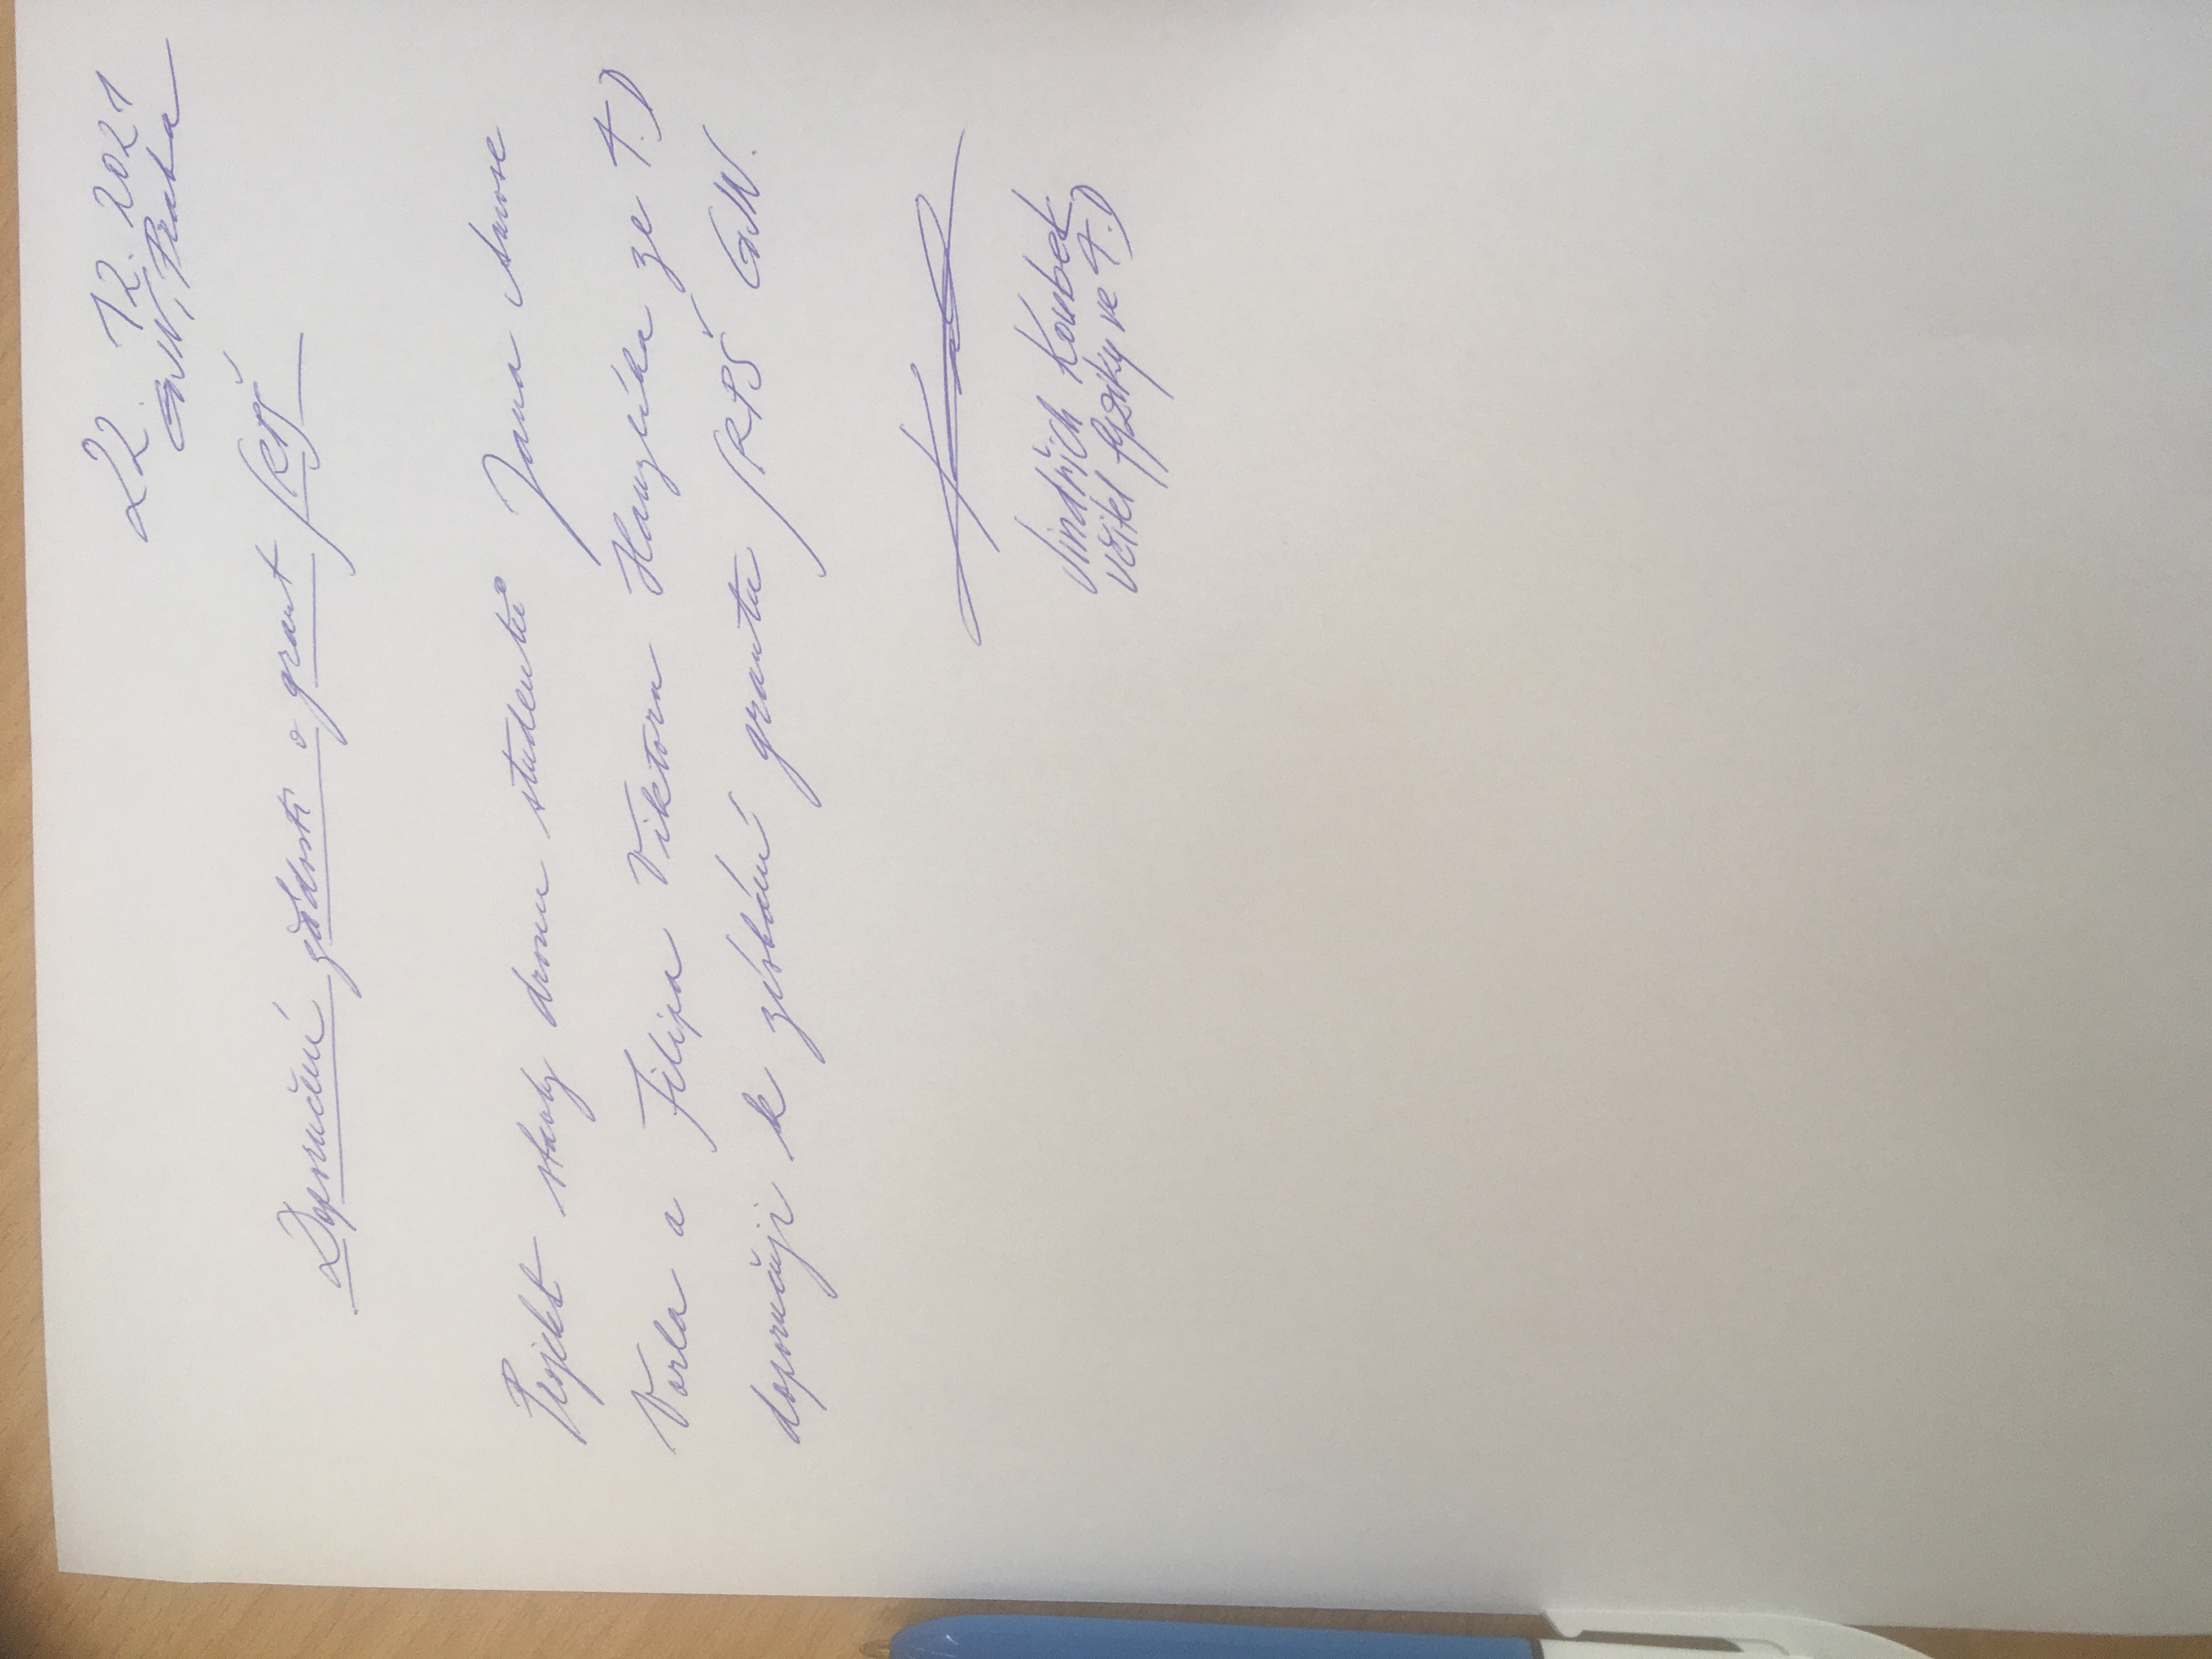 22. 12. 2021
GJN, Praha
Doporučení žádosti o grant SRPŠ
Projekt stavby dronu studentů Jana Amose
Vorla a Filipa Viktora Hanzlíka ze 4.D
doporučuji k získání grantu SRPŠ GJN.
Jindřich Koubek
učitel fyziky ve 4.D